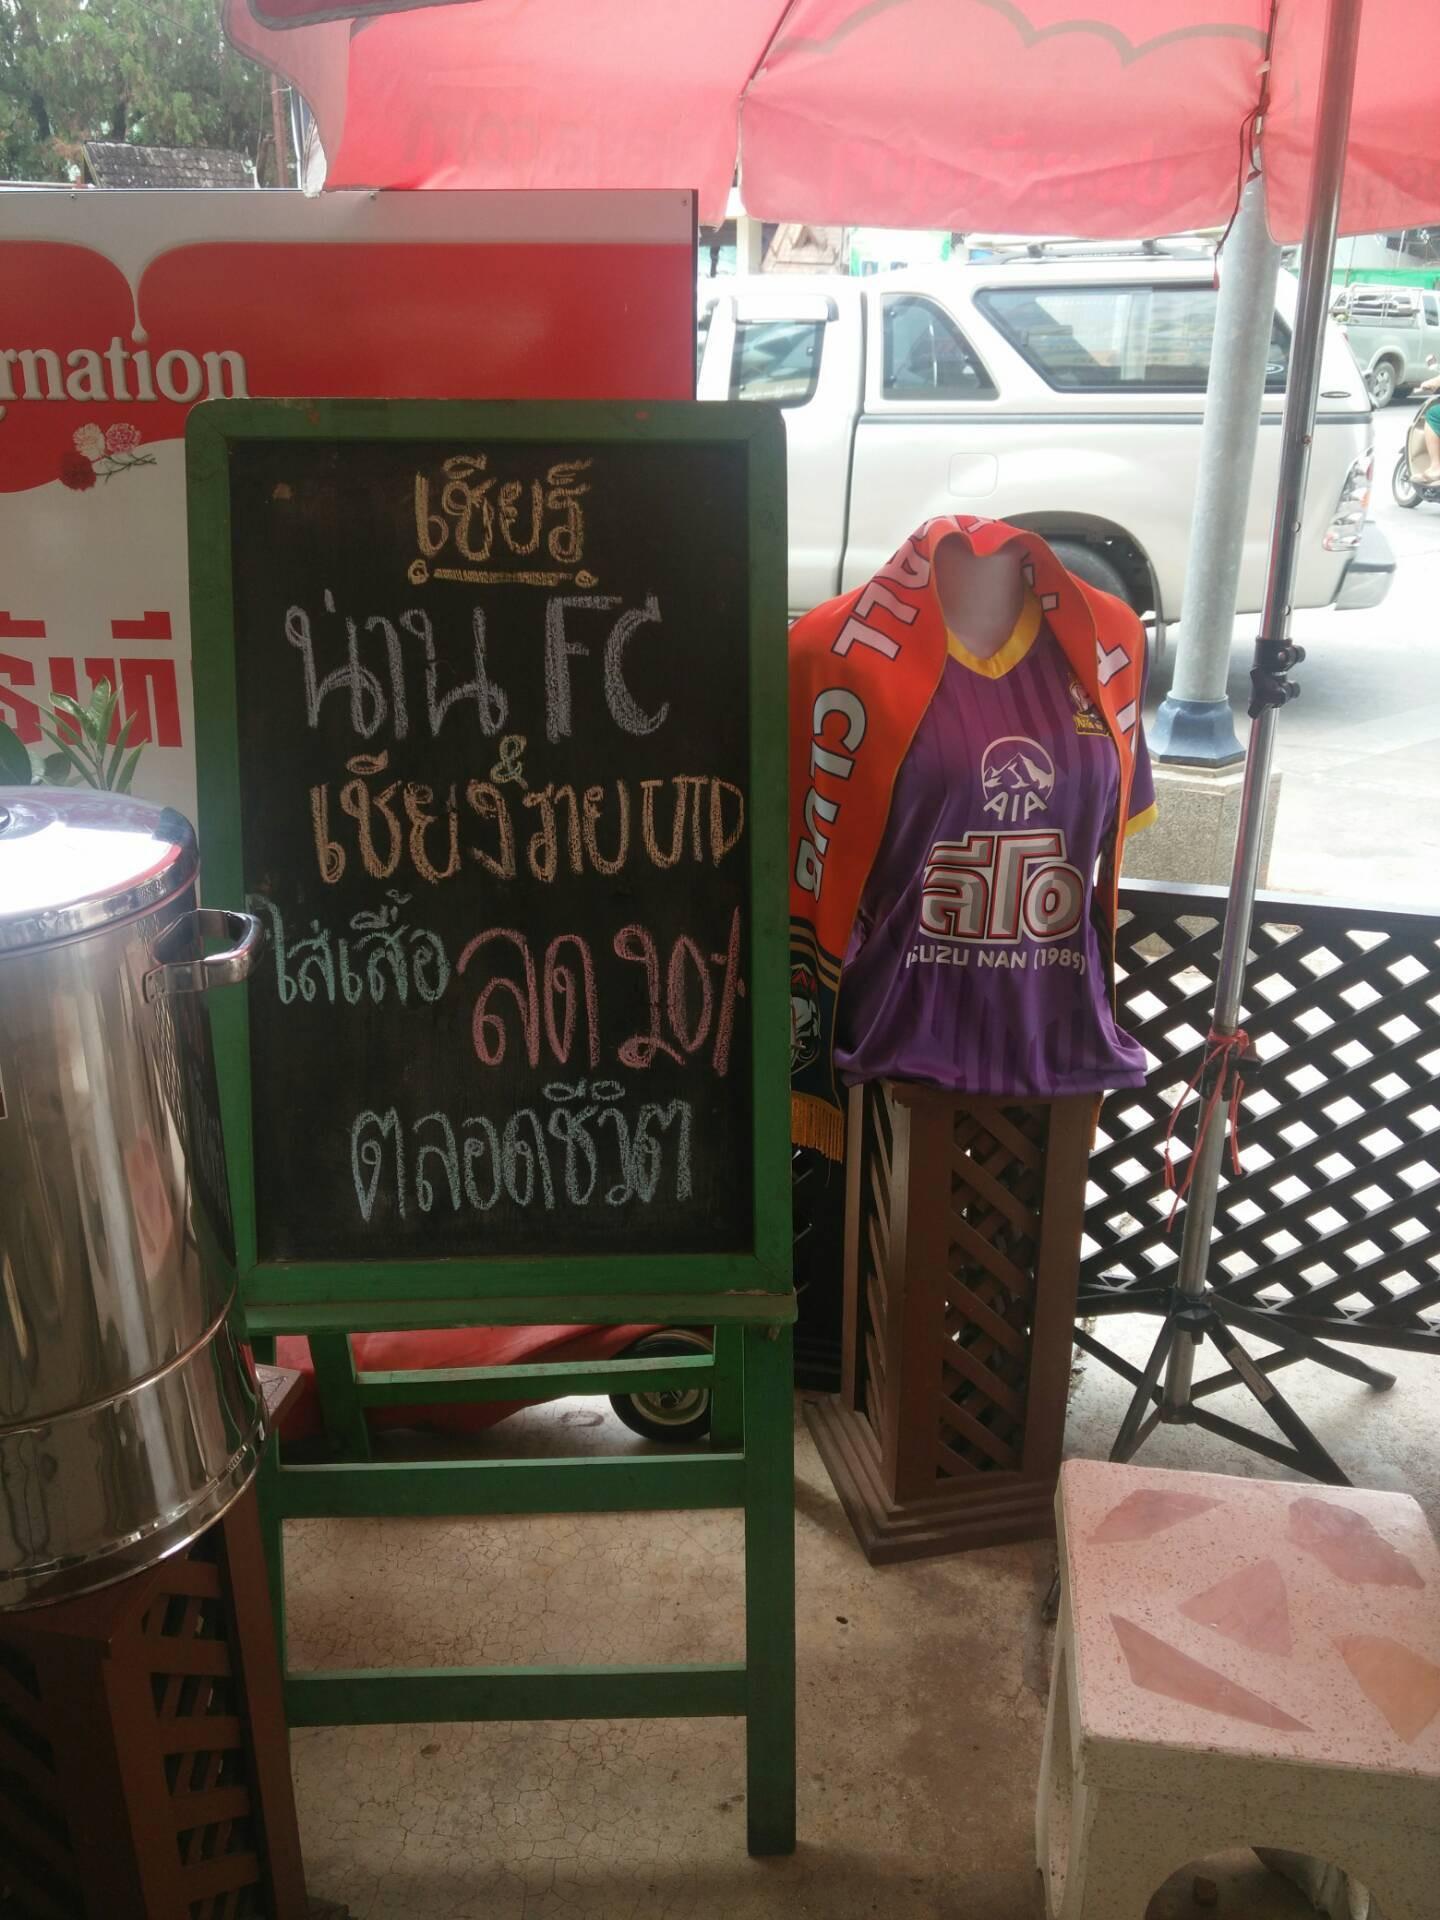 rnation
เชียร์
น่าน FC
&
เชียงราย UTD
ใส่เสื้อ ลด 20%
ตลอดชีวิต
CLUB
AIA
ลีโอ
ISUZU NAN (1989)